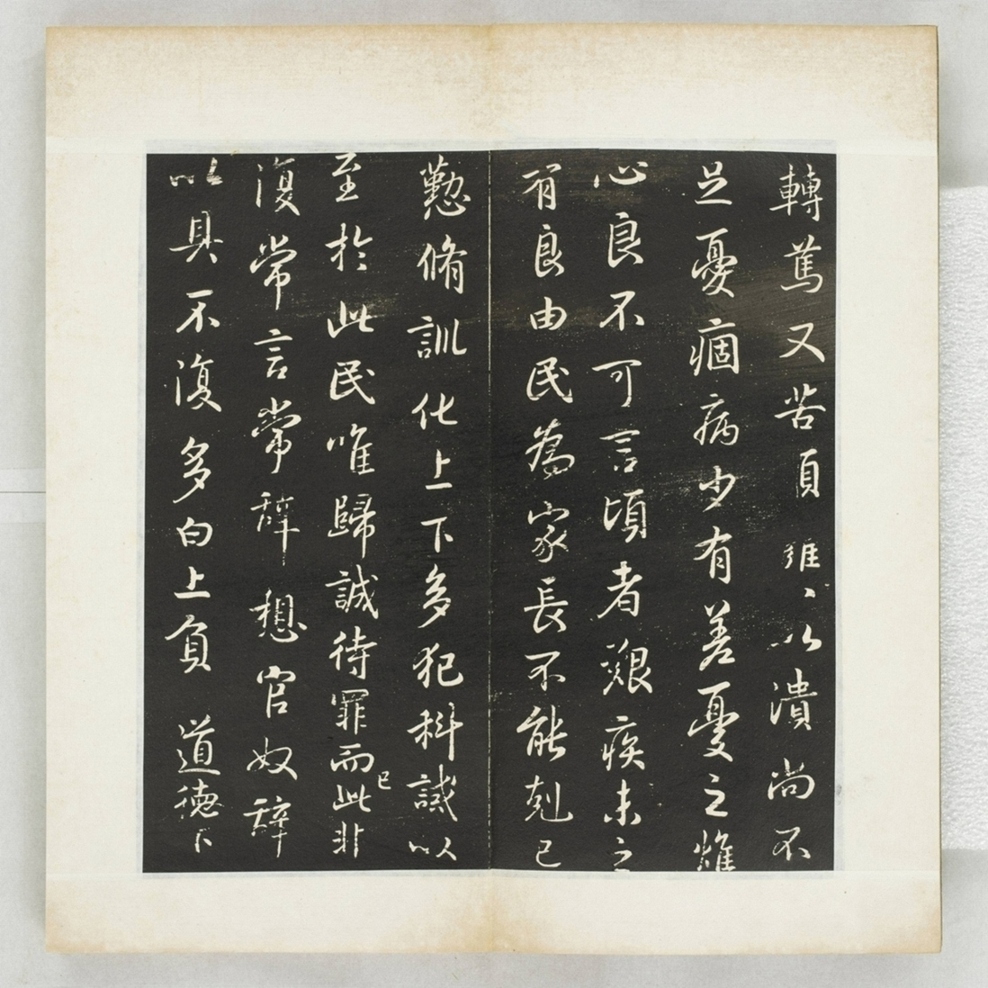 轉篤又苦頭癰〻以潰尚不
足憂痼病少有差憂之燋
心良不可言頃者艱疾未之
有良由民為家長不能剋己
懃脩訓化上下多犯科誡以
至於此民唯歸誠待罪而已此非
復常言常辭想官奴辭
以具不復多白上負道德下